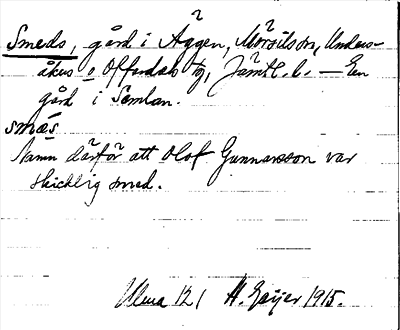 Smeds, gård i Äggen, Mörsilsbn, Unders-
åkers o Offerdals tg, Jämtl. l. — En
gård i Semlan.
smæs
Namn därför att Olof Gunnarsson var
skicklig smed.
Ulma 121 H. Geijer 1915.